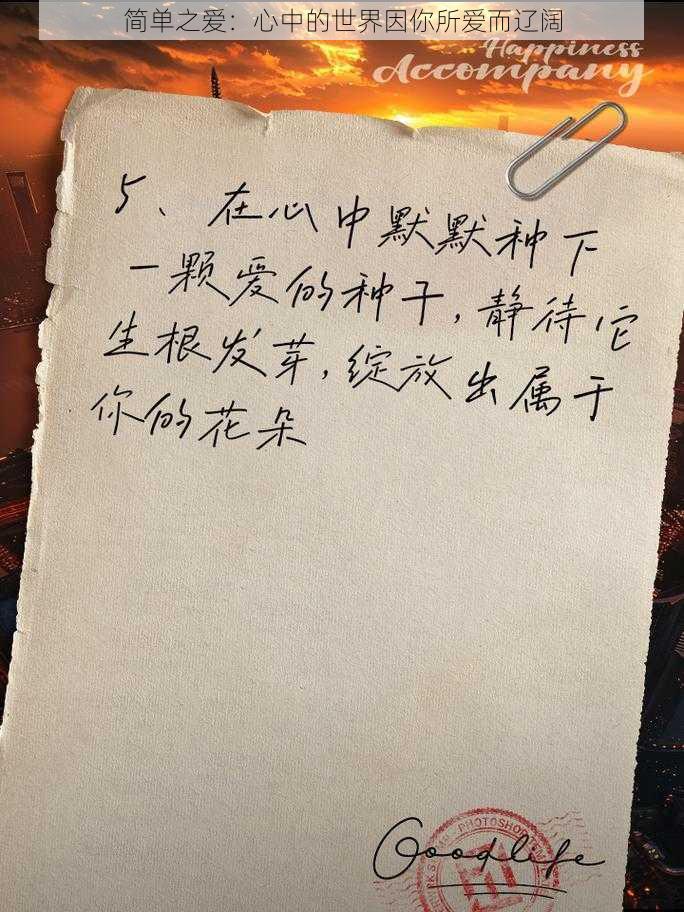 简单之爱：心中的世界因你所爱而辽阔
Happiness
Accompany
5、在心中默默种下
一颗爱的种子，静待它
生根发芽，绽放出属于
你的花朵
PHOTOSHOP
Goodlife